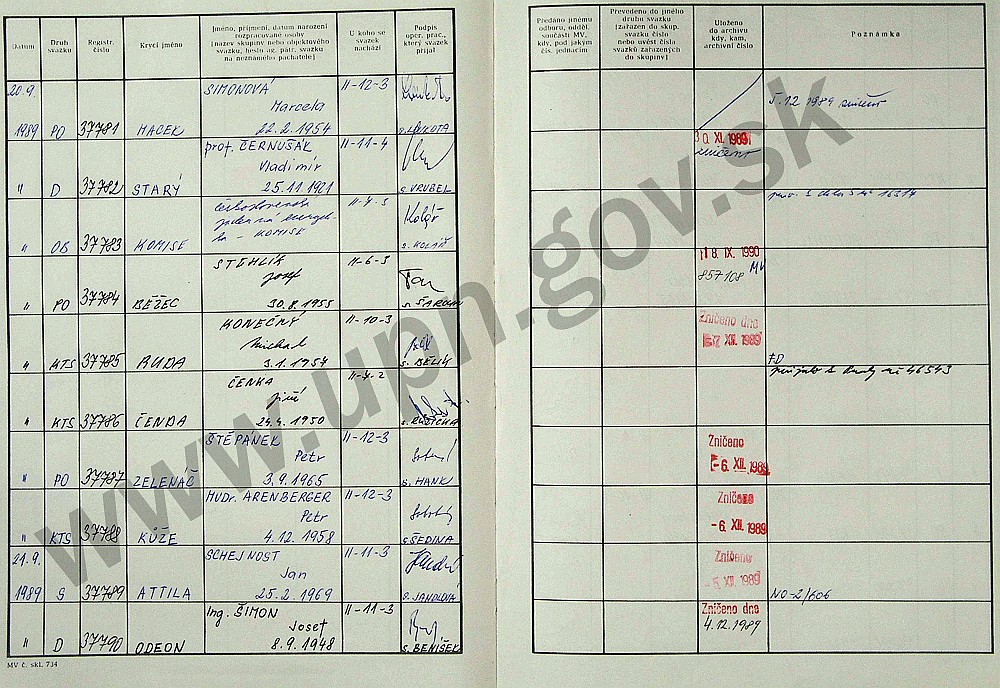 Datum
Druh svazku
Registr. číslo
Krycí jméno
Jméno, příjmení, datum narození rozpracované osoby
[název skupiny nebo objektového svazku, heslo ag. pátr. svazku na neznámého pachatele]
U koho se svazek nachází
Podpis oper. prac., který svazek přijal
Předáno jinému odboru, odděl. součásti MV, kdy, pod jakým čís. jednacím
Převedeno do jiného druhu svazku [zařazen do skup. svazku číslo nebo uvést čísla svazků zařazených do skupiny]
Uloženo do archivu kdy, kam, archivní číslo
Poznámka
20.9. 1989 PO 37781 HACEK
SIMONOVÁ
Marcela
22.2.1954
II-12-3
5.12.1989
" D 37782 STARÝ
prof. ČERNUŠÁK
Vladimír
25.11.1921
II-11-4
s. VRUBEL
30. XI. 1989
zničeno
" OB 37783 KOMISE
Československá
- KOMISE
II-4-3
s. KOLÁŘ
" PO 37784 BĚŽEC
STEHLÍK
Josef
30.8.1955
II-6-3
18. IX. 1990
857108 MV
" KTS 37785 RUDA
KONEČNÝ
Michal
3.1.1957
II-10-3
s. BĚLÍK
Zničeno dne
XII. 1989
" KTS 37786 ČENDA
ČENKA
Jiří
24.4.1950
II-7-2
s. RŮŽIČKA
" PO 37787 ZELENÁČ
ŠTĚPÁNEK
Petr
3.9.1965
II-12-3
s. HANK
Zničeno
-6. XII. 1989
" KTS 37788 KŮŽE
MUDr. ARENBERGER
Petr
4.12.1958
II-12-3
s. ŠEDINA
Zničeno
-6. XII. 1989
21.9. 1989 S 37789 ATTILA
SCHEJNOST
Jan
25.2.1969
II-11-3
s. JANDLOVÁ
Zničeno
XII. 1989
NO-2/606
" D 37790 ODEON
Ing. ŠIMON
Josef
8.9.1948
II-11-3
s. BENÍŠEK
Zničeno dne
4.12.1989
MV č. skl. 734
www.upn.gov.sk